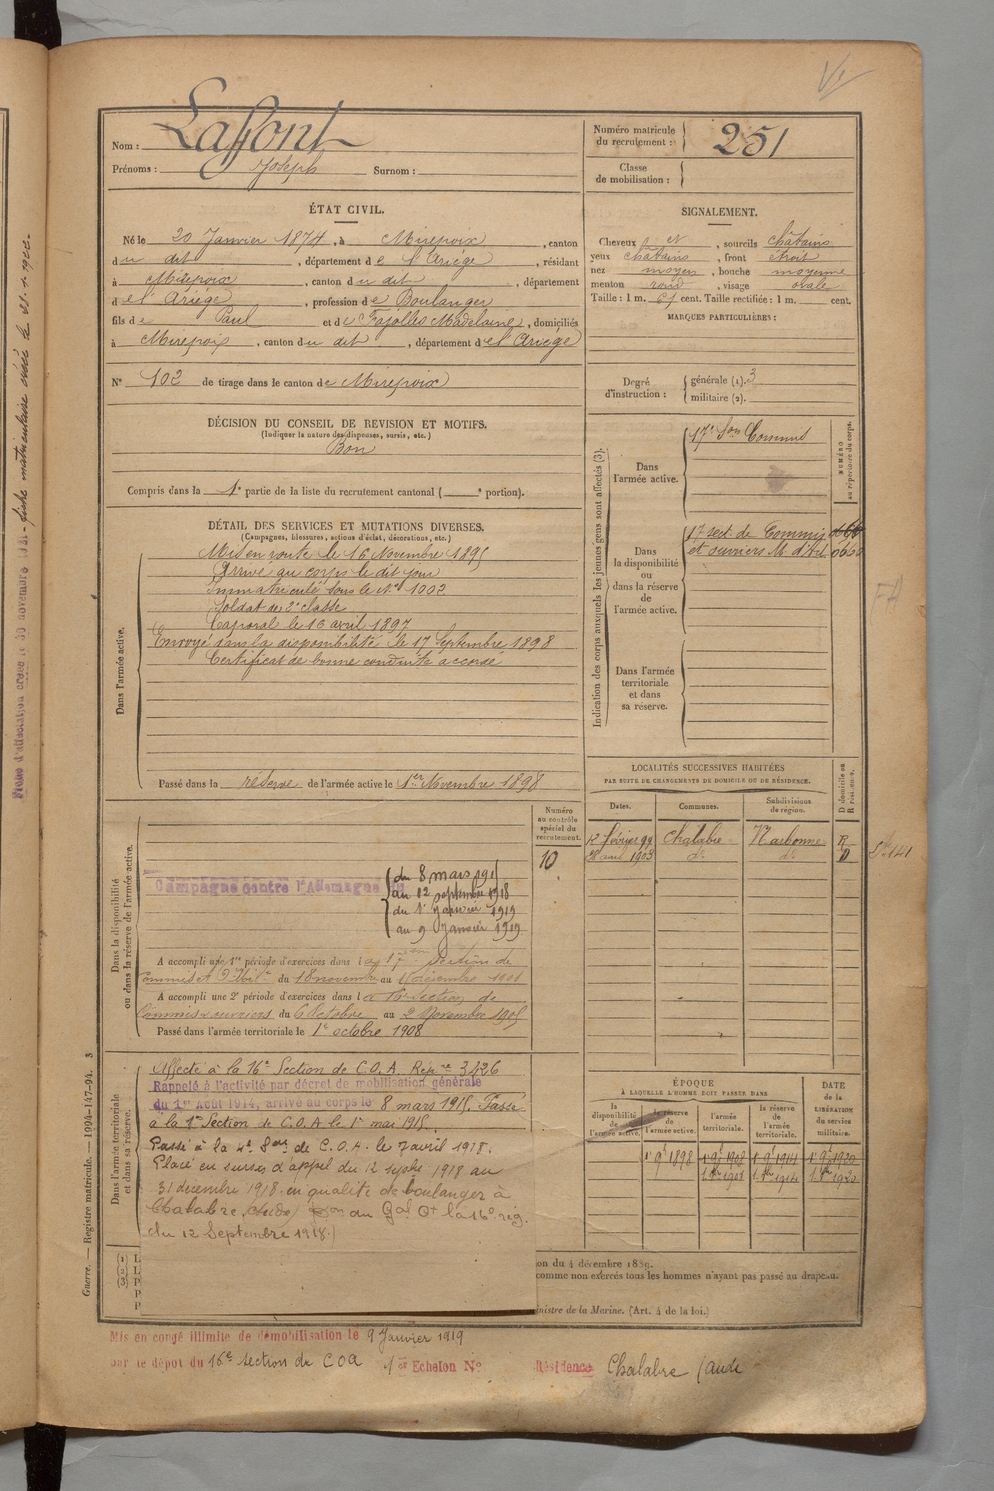 Nom : Laffont
Prénoms : Joseph Surnom :
Numéro matricule du recrutement : 251
Classe de mobilisation :
ÉTAT CIVIL.
Né le 20 Janvier 1874, à Mirepoix, canton
du dit, département de l'Ariège, résidant
à Mirepoix, canton du dit, département
de l'Ariège, profession de Boulanger
fils de Paul et de Fajolles Madelaine, domiciliés
à Mirepoix, canton du dit, département de l'Ariège
N° 102 de tirage dans le canton de Mirepoix
SIGNALEMENT.
Cheveux et, sourcils châtains
yeux châtains, front étroit
nez moyen, bouche moyenne
menton rond, visage ovale
Taille : 1 m. cent. Taille rectifiée : 1 m. cent.
MARQUES PARTICULIÈRES :
Degré d'instruction : générale (1). 3
militaire (2).
DÉCISION DU CONSEIL DE REVISION ET MOTIFS.
(Indiquer la nature des dispenses, sursis, etc.)
Bon
Compris dans la 1e partie de la liste du recrutement cantonal (e portion).
DÉTAIL DES SERVICES ET MUTATIONS DIVERSES.
(Campagnes, blessures, actions d'éclat, décorations, etc.)
Dans l'armée active.
Mis en route le 16 Novembre 1895
Arrivé au corps le dit jour
Immatriculé sous le N° 1002
Soldat de 2e classe
Caporal le 13 avril 1897
Envoyé dans la disponibilité le 17 Septembre 1898
Certificat de bonne conduite accordé
Passé dans la réserve de l'armée active le 1er Novembre 1898
Indication des corps auxquels les jeunes gens sont affectés (3).
NUMÉRO au répertoire du corps.
Dans l'armée active.
17e Son Commis
Dans la disponibilité ou dans la réserve de l'armée active.
17 sect. de Commis
et ouvriers M. d'Ad
Dans l'armée territoriale et dans sa réserve.
LOCALITÉS SUCCESSIVES HABITÉES
PAR SUITE DE CHANGEMENTS DE DOMICILE OU DE RÉSIDENCE.
D domicile ou R résidence.
Dates. Communes. Subdivisions de région.
12 février 99 Chalabre Narbonne R
28 avril 1903 do do D
Dans la disponibilité ou dans la réserve de l'armée active.
Numéro au contrôle spécial du recrutement.
10
Campagne contre l'Allemagne
du 8 mars 191
au 12 septembre 1918
du 1er Janvier 1919
au 9 Janvier 1919
A accompli une 1re période d'exercices dans la 17e section de
Commis et du 18 novembre au décembre 1901
A accompli une 2e période d'exercices dans la section de
Commis ouvriers du 6 Octobre au 2 Novembre 1905
Passé dans l'armée territoriale le 1er octobre 1908
Dans l'armée territoriale et dans sa réserve.
Affecté à la 16e Section de C.O.A. Rép. re 3426
Rappelé à l'activité par décret de mobilisation générale
du 1er Août 1914, arrivé au corps le 8 mars 1915. Passé
à la 1re Section de C.O.A le 1er mai 1915.
Passé à la 4e Son de C.O.A. le 7 avril 1918.
Placé en sursis d'appel du 12 septe 1918 au
31 décembre 1918 en qualité de boulanger à
Chalabre (Aude) du Gal Ct la 16e rég.
du 12 Septembre 1918.)
ÉPOQUE
À LAQUELLE L'HOMME DOIT PASSER DANS
la disponibilité de l'armée active. la réserve de l'armée active. l'armée territoriale. la réserve de l'armée territoriale.
DATE de la LIBÉRATION du service militaire.
1er 9e 1898 1er 9e 1908 1 9e 1914 1er 9e 1920
(1) L
(2) L
(3) P
P
P
on du 4 décembre 1889.
comme non exercés tous les hommes n'ayant pas passé au drapeau.
inistre de la Marine. (Art. 4 de la loi.)
Guerre. — Registre matricule. — 1994-147-94. 3
Mis en congé illimité de démobilisation le 9 Janvier 1919
par le dépôt du 16e section de COA 1er Echelon N° Résidence Chalabre (Aude